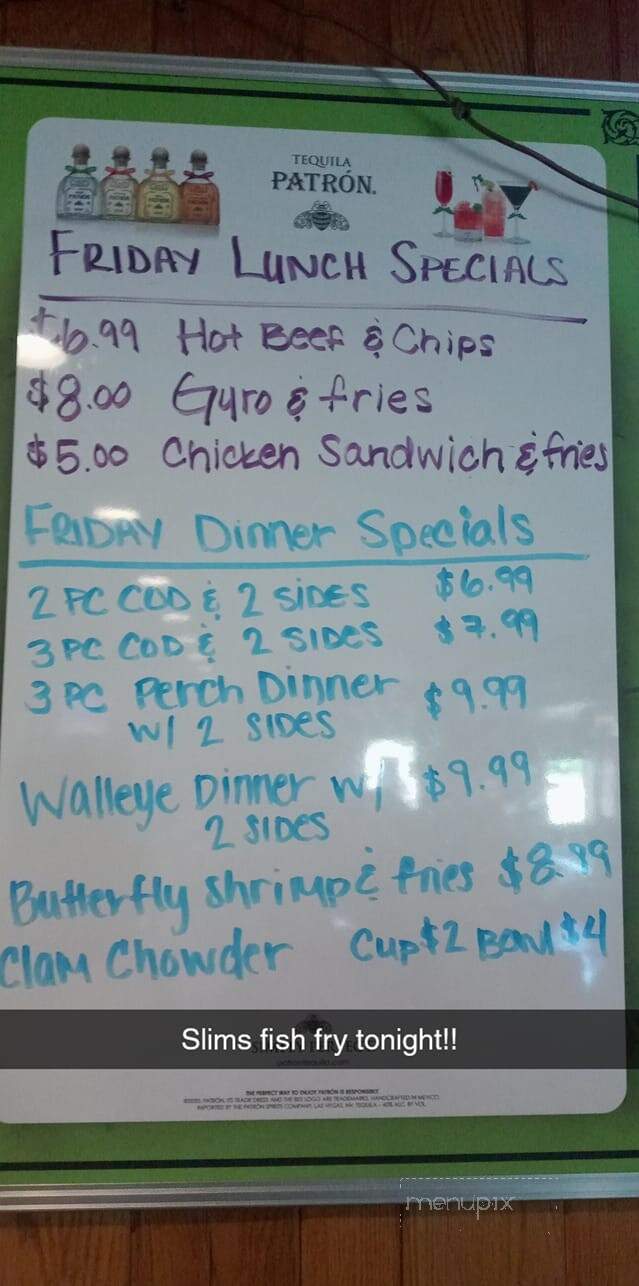 TEQUILA
PATRÓN.
FRIDAY LUNCH SPECIALS
$6.99 Hot Beef & Chips
$8.00 Gyro & fries
$5.00 Chicken Sandwich & fries
FRIDAY Dinner Specials
2 PC COD & 2 SIDES $6.99
3 PC COD & 2 SIDES $7.99
3 PC Perch Dinner $9.99
W/ 2 SIDES
Walleye Dinner W/ $9.99
2 SIDES
Butterfly Shrimp & fries $8.99
Clam Chowder Cup $2 Bowl $4
Slims fish fry tonight!!
THE PERFECT WAY TO ENJOY PATRÓN IS RESPONSIBLY.
menupix